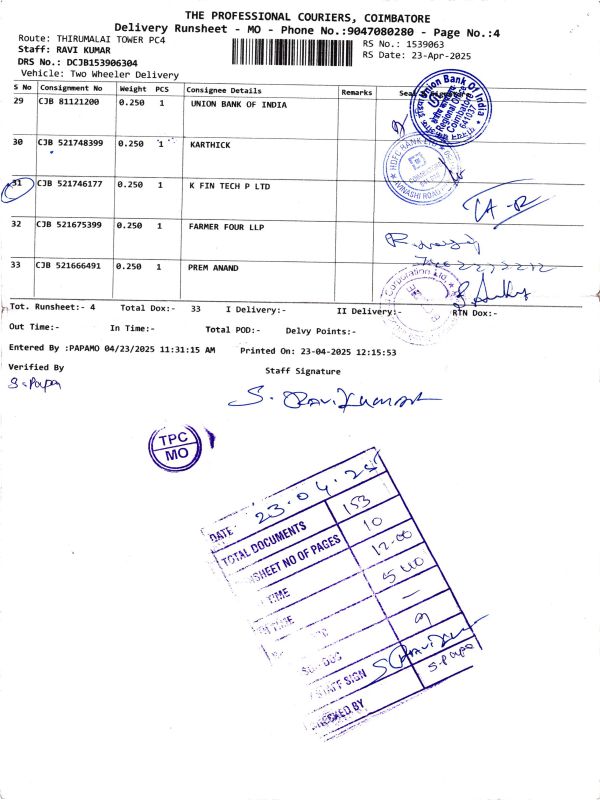 THE PROFESSIONAL COURIERS, COIMBATORE
Delivery Runsheet - MO - Phone No.:9047080280 - Page No.:4
Route: THIRUMALAI TOWER PC4
RS No.: 1539063
Staff: RAVI KUMAR
RS Date: 23-Apr-2025
DRS No.: DCJB153906304
Vehicle: Two Wheeler Delivery
S No Consignment No Weight PCS Consignee Details Remarks
29 CJB 81121200 0.250 1 UNION BANK OF INDIA
Union Bank Of India
Regional Office
Coimbatore
641037
30 CJB 521748399 0.250 1 KARTHICK
HDFC BANK LTD
AVINASHI ROAD
31 CJB 521746177 0.250 1 K FIN TECH P LTD
32 CJB 521675399 0.250 1 FARMER FOUR LLP
33 CJB 521666491 0.250 1 PREM ANAND
Corporation Ltd.
Tot. Runsheet:- 4 Total Dox:- 33 I Delivery:- II Delivery:- RTN Dox:-
Out Time:- In Time:- Total POD:- Delvy Points:-
Entered By :PAPAMO 04/23/2025 11:31:15 AM Printed On: 23-04-2025 12:15:53
Verified By Staff Signature
S. Papa
S. Ravi Kumar
TPC
MO
DATE: 23.04.25
TOTAL DOCUMENTS 153
SHEET NO OF PAGES 10
TIME 12.00
TIME 5.40
DOC
STAFF SIGN S. Ravi Kumar
CHECKED BY S. Papa